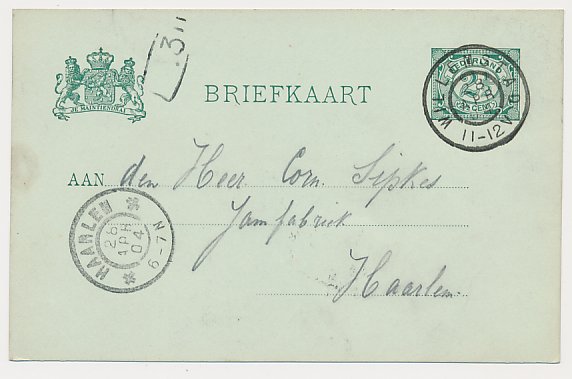 .3"
JE MAINTIENDRAI
BRIEFKAART
NEDERLAND
2½
CENT
11-12V
AAN den Heer Corn. Sipkes
Jamfabriek
Haarlem.
HAARLEM
26 APR 04
6-7N